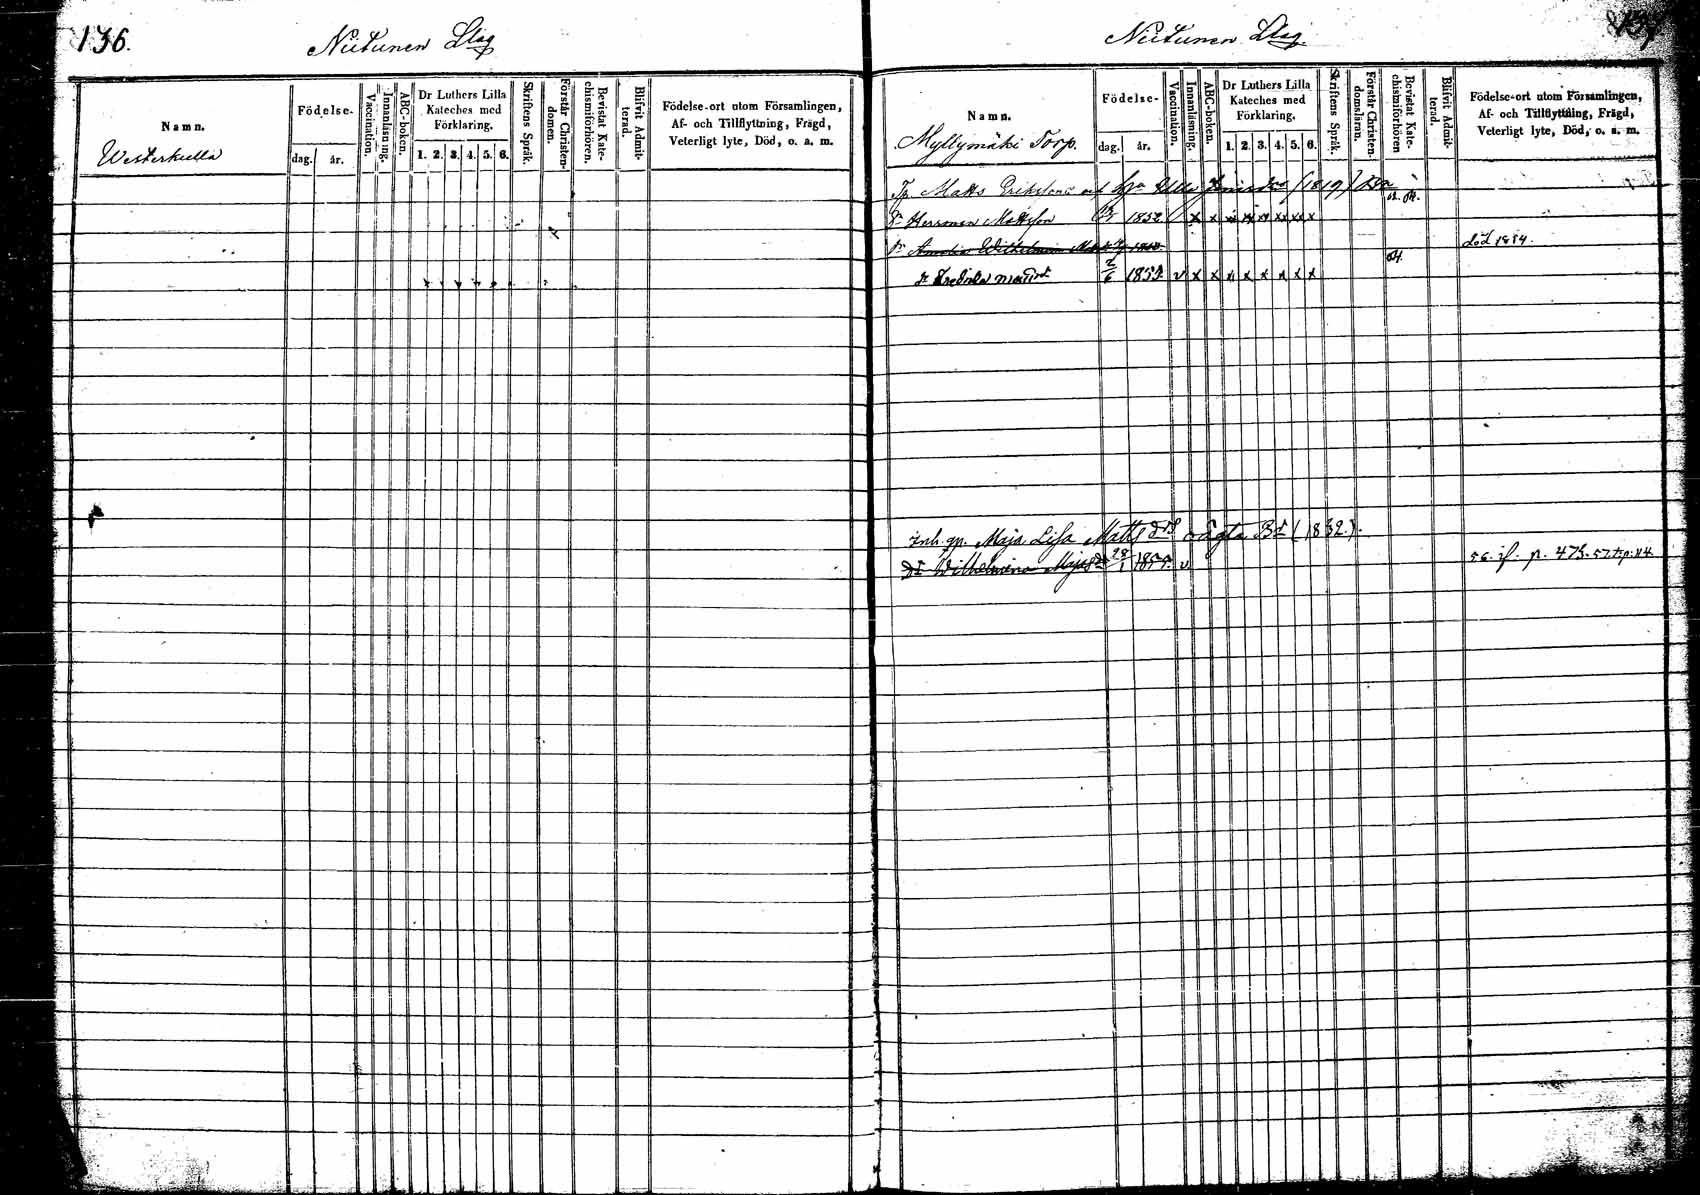 136.
Niitunen Slag
Namn.
Födelse-
dag. år.
Vaccination.
Innanläsning.
ABC-boken.
Dr Luthers Lilla
Kateches med
Förklaring.
1. 2. 3. 4. 5. 6.
Skriftens Språk.
Förstår Christen-
domen.
Bevistat Kate-
chismiförhören.
Blifvit Admit-
terad.
Födelse-ort utom Församlingen,
Af- och Tillflyttning, Frägd,
Veterligt lyte, Död, o. a. m.
Westerkulla
137
Niitunen Slag.
Namn.
Myllymäki Torp.
Födelse-
dag. år.
Vaccination.
Innanläsning.
ABC-boken.
Dr Luthers Lilla
Kateches med
Förklaring.
1. 2. 3. 4. 5. 6.
Skriftens Språk.
Förstår Christen-
domslärann.
Bevistat Kate-
chismiförhören
Blifvit Admit-
terad.
Födelse-ort utom Församlingen,
Af- och Tillflyttning, Frägd,
Veterligt lyte, Död, o. a. m.
Tp. Matts Eriksson och Ulla (1819)
Sn Herman Mattsson 1852 x x x x x x x x
Dr Amalia Wilhelmina död 1854.
Dr Fredrika Mattsdr 2/6 1857 v x x x x x x x x
Inh. qp. Maja Lisa Mattsdr oägta Bt (1832).
Dr Wilhelmina Majasdr 28/1 1855. v 56. if. p. 473. 57